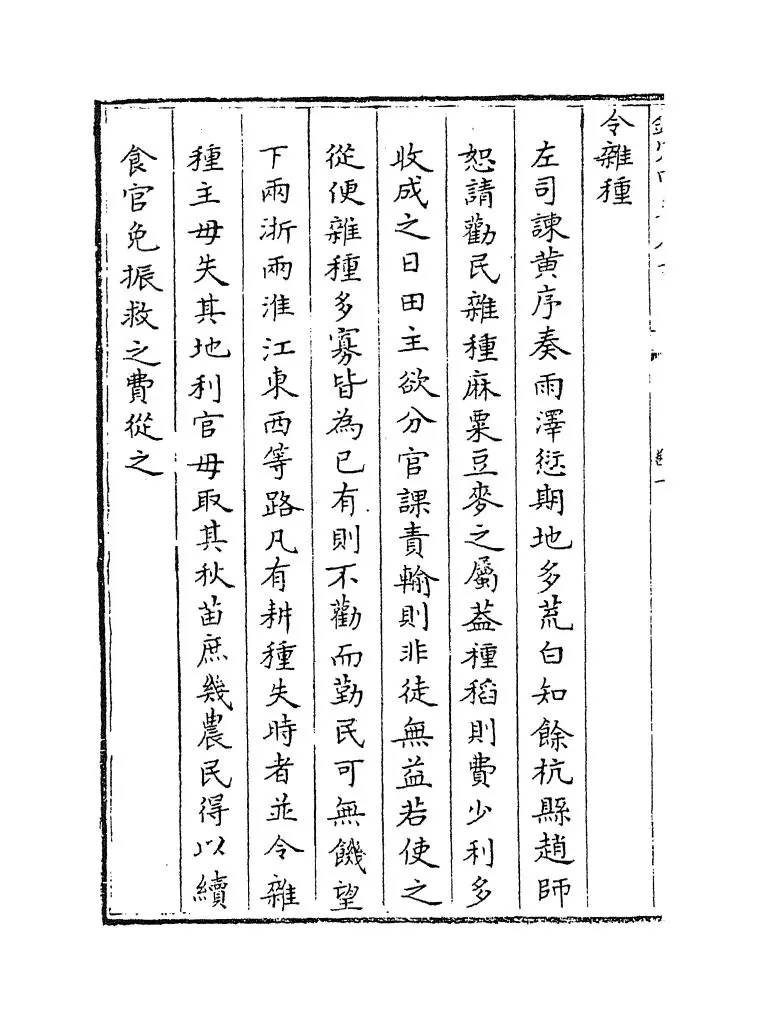 令雜種
左司諫黄序奏雨澤愆期地多荒白知餘杭縣趙師
恕請勸民雜種麻粟豆麥之屬葢種稻則費少利多
收成之日田主欲分官課責輸則非徒無益若使之
從便雜種多寡皆為已有則不勸而勤民可無饑望
下兩浙兩淮江東西等路凡有耕種失時者並令雜
種主毋失其地利官毋取其秋苗庶幾農民得以續
食官免振救之費從之